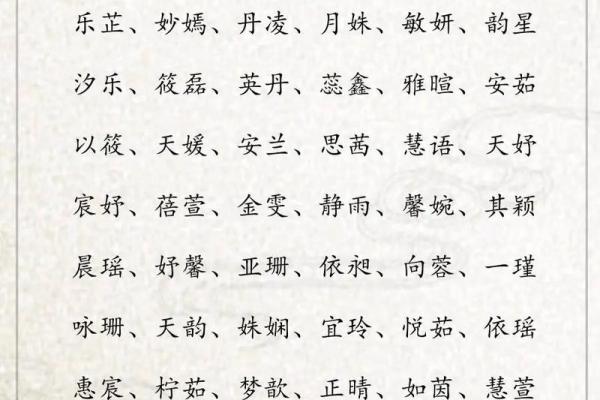 乐芷、妙嫣、丹凌、月姝、敏妍、韵星
汐乐、筱磊、英丹、蕊鑫、雅暄、安茹
以筱、天媛、安兰、思茜、慧语、天妤
宸妤、蓓萱、金雯、静雨、馨婉、其颖
晨瑶、妤馨、亚珊、依昶、向蓉、一瑾
咏珊、天韵、姝娴、宜玲、悦茹、依瑶
惠宸、柠茹、梦歆、正晴、如茵、慧萱